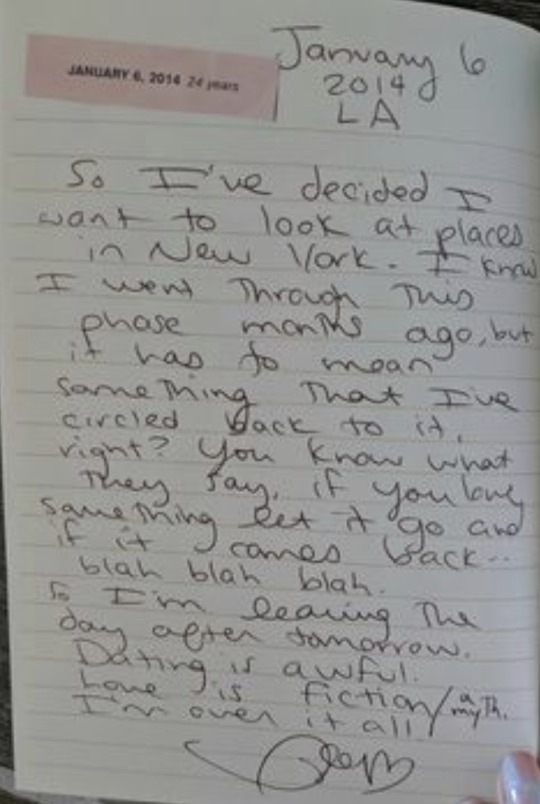 JANUARY 6, 2014 24 years
January 6
2014
LA
So I've decided I
want to look at places
in New York. I know
I went Through This
phase months ago, but
it has to mean
someThing That I've
circled back to it,
right? You know what
They say, if you love
someThing let it go and
if it comes back...
blah blah blah.
So I'm leaving The
day after tomorrow.
Dating is awful.
Love is fiction/a myTh.
I'm over it all